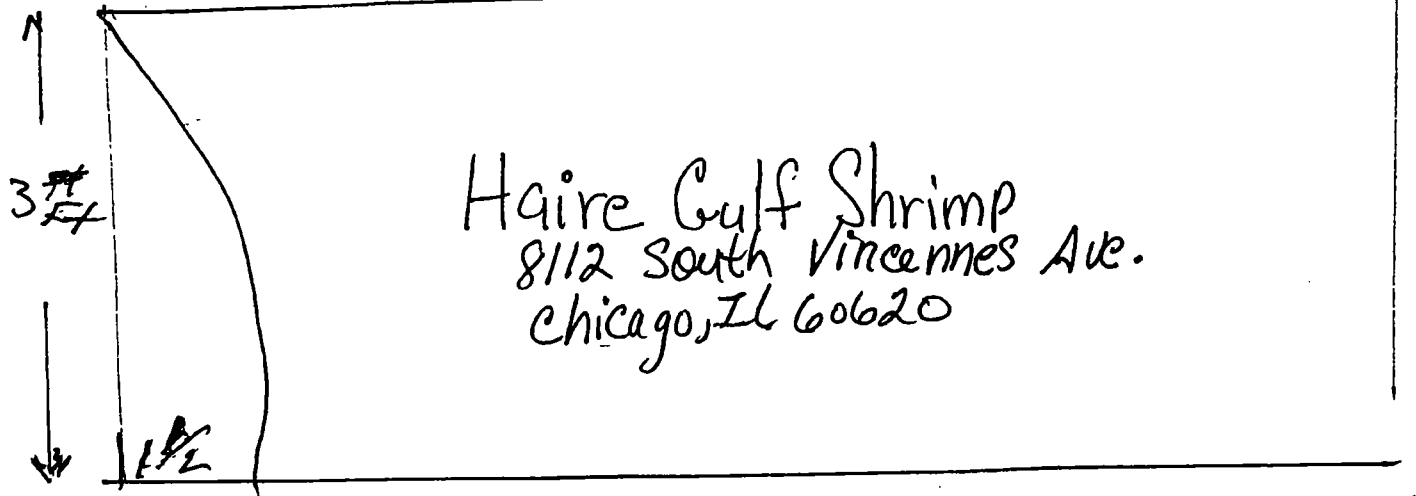 3 Ft
Haire Gulf Shrimp
8112 South Vincennes Ave.
Chicago, IL 60620
1 1/2